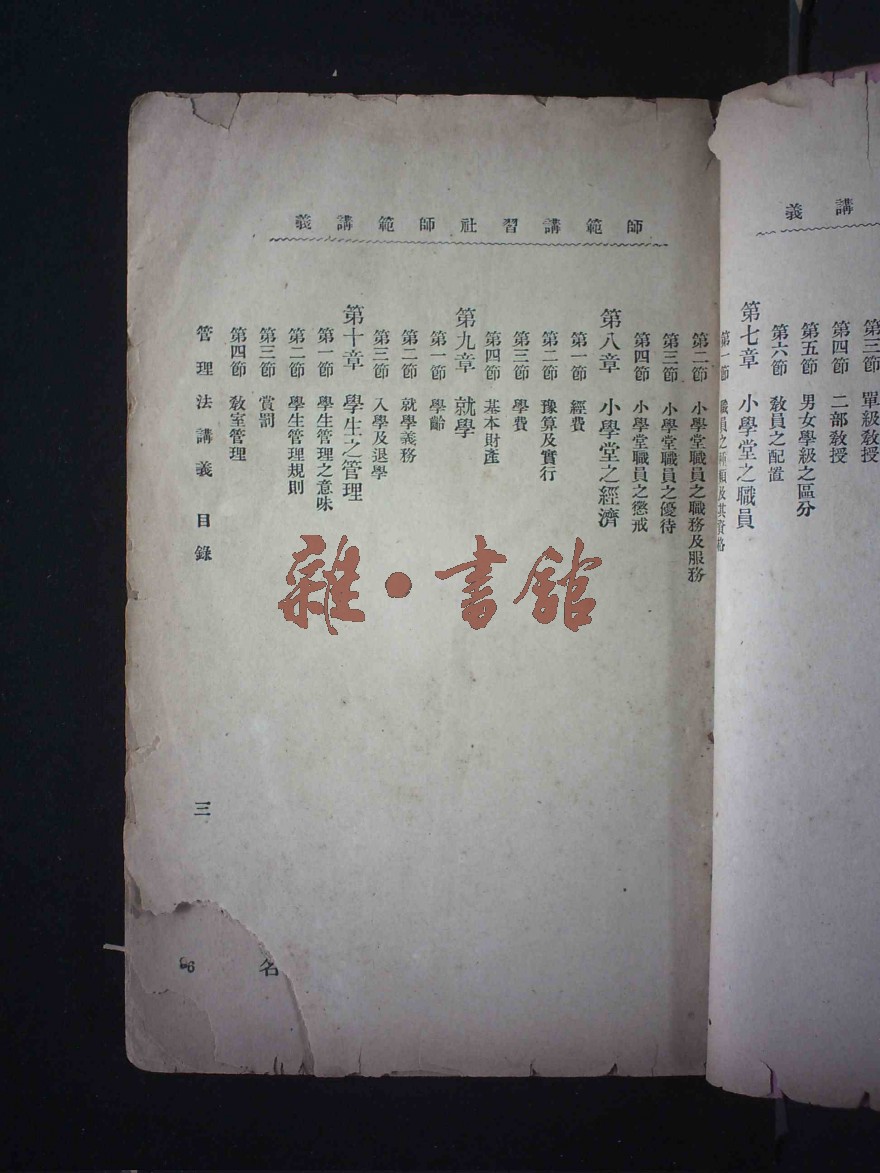 講義
第三節 單級敎授
第四節 二部敎授
第五節 男女學級之區分
第六節 敎員之配置
第七章 小學堂之職員
第一節 職員之種類及其資格
師範講習社師範講義
第二節 小學堂職員之職務及服務
第三節 小學堂職員之優待
第四節 小學堂職員之懲戒
第八章 小學堂之經濟
第一節 經費
第二節 豫算及實行
第三節 學費
第四節 基本財產
第九章 就學
第一節 學齡
第二節 就學義務
第三節 入學及退學
第十章 學生之管理
第一節 學生管理之意味
第二節 學生管理規則
第三節 賞罰
第四節 敎室管理
管理法講義 目錄
三
名
96
雜·書館